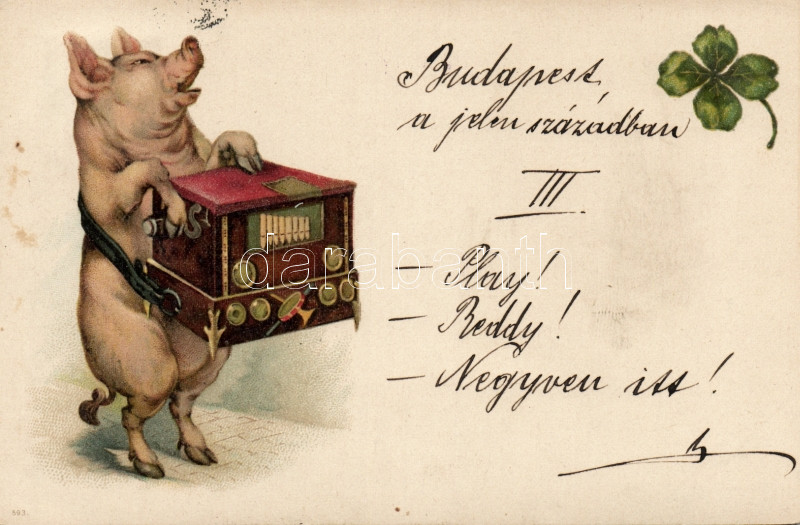 Budapest,
a jelen században
III.
- Play!
- Reddy!
- Negyven itt!
darabanth
693